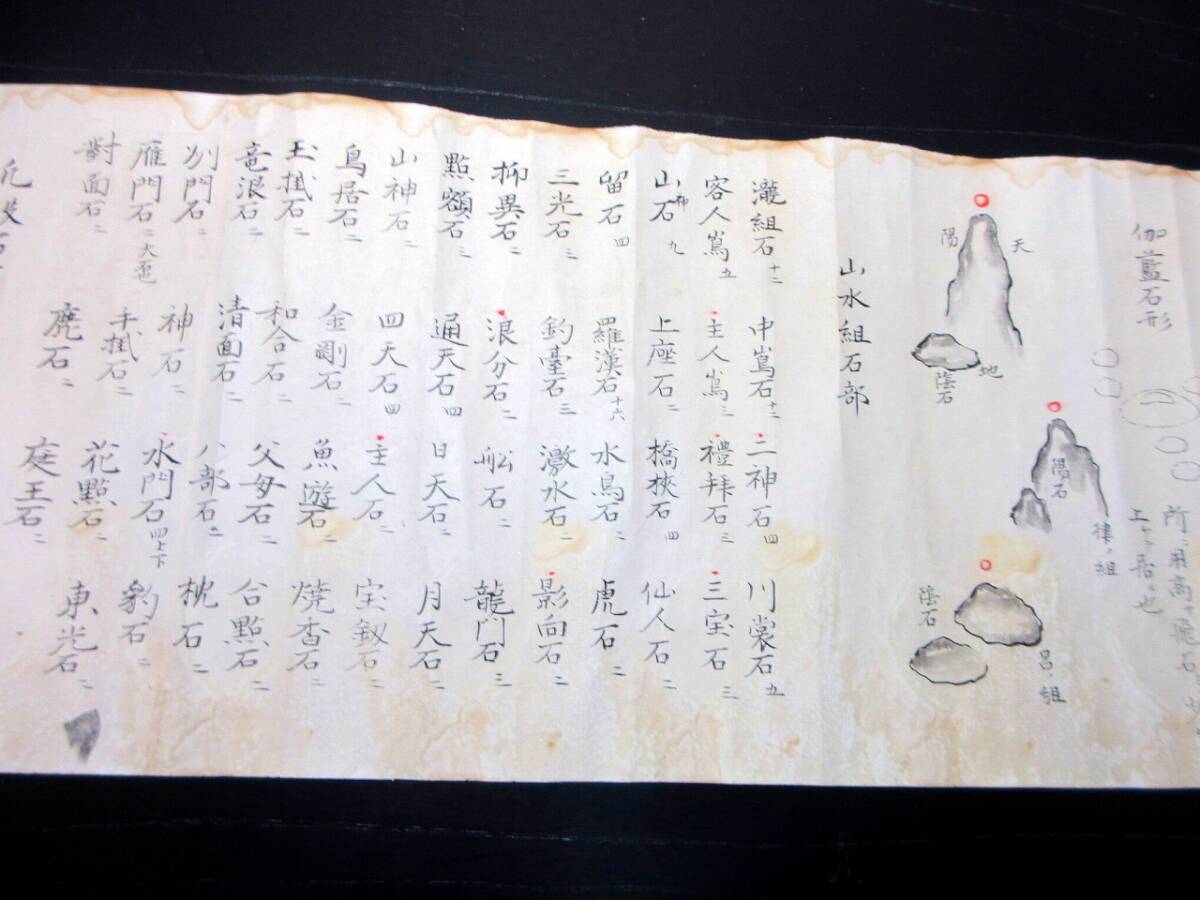 伽藍石形
所ニ用高キ飛石
上ケテ居ル也
天
陽
地
陰石
陽石
律ノ組
陰石
呂ノ組
山水組石部
瀧組石 十二 中嶌石 十三 二神石 四 川裳石 五
客人嶌 五 主人嶌 三 禮拜石 三 三宝石 三
山神石 九 上座石 二 橋挾石 四 仙人石 二
留石 四 羅漢石 十六 水鳥石 二 虎石 二
三光石 三 釣臺石 三 激水石 二 影向石 二
柳異石 二 浪分石 二 舩石 二 龍門石 三
點額石 三 通天石 四 日天石 二 月天石 二
山神石 二 四天石 四 主人石 二 宝釼石 二
鳥居石 二 金剛石 二 魚遊石 二 焼香石 二
玉掛石 二 和合石 二 父母石 二 合點石 二
竜浪石 二 清面石 二 八部石 二 枕石 二
別門石 二 神石 二 水門石 四上下 豹石 二
雁門石 二 大 手掛石 二 花點石 二 東光石 二
對面石 二 鹿石 二 庭王石 二